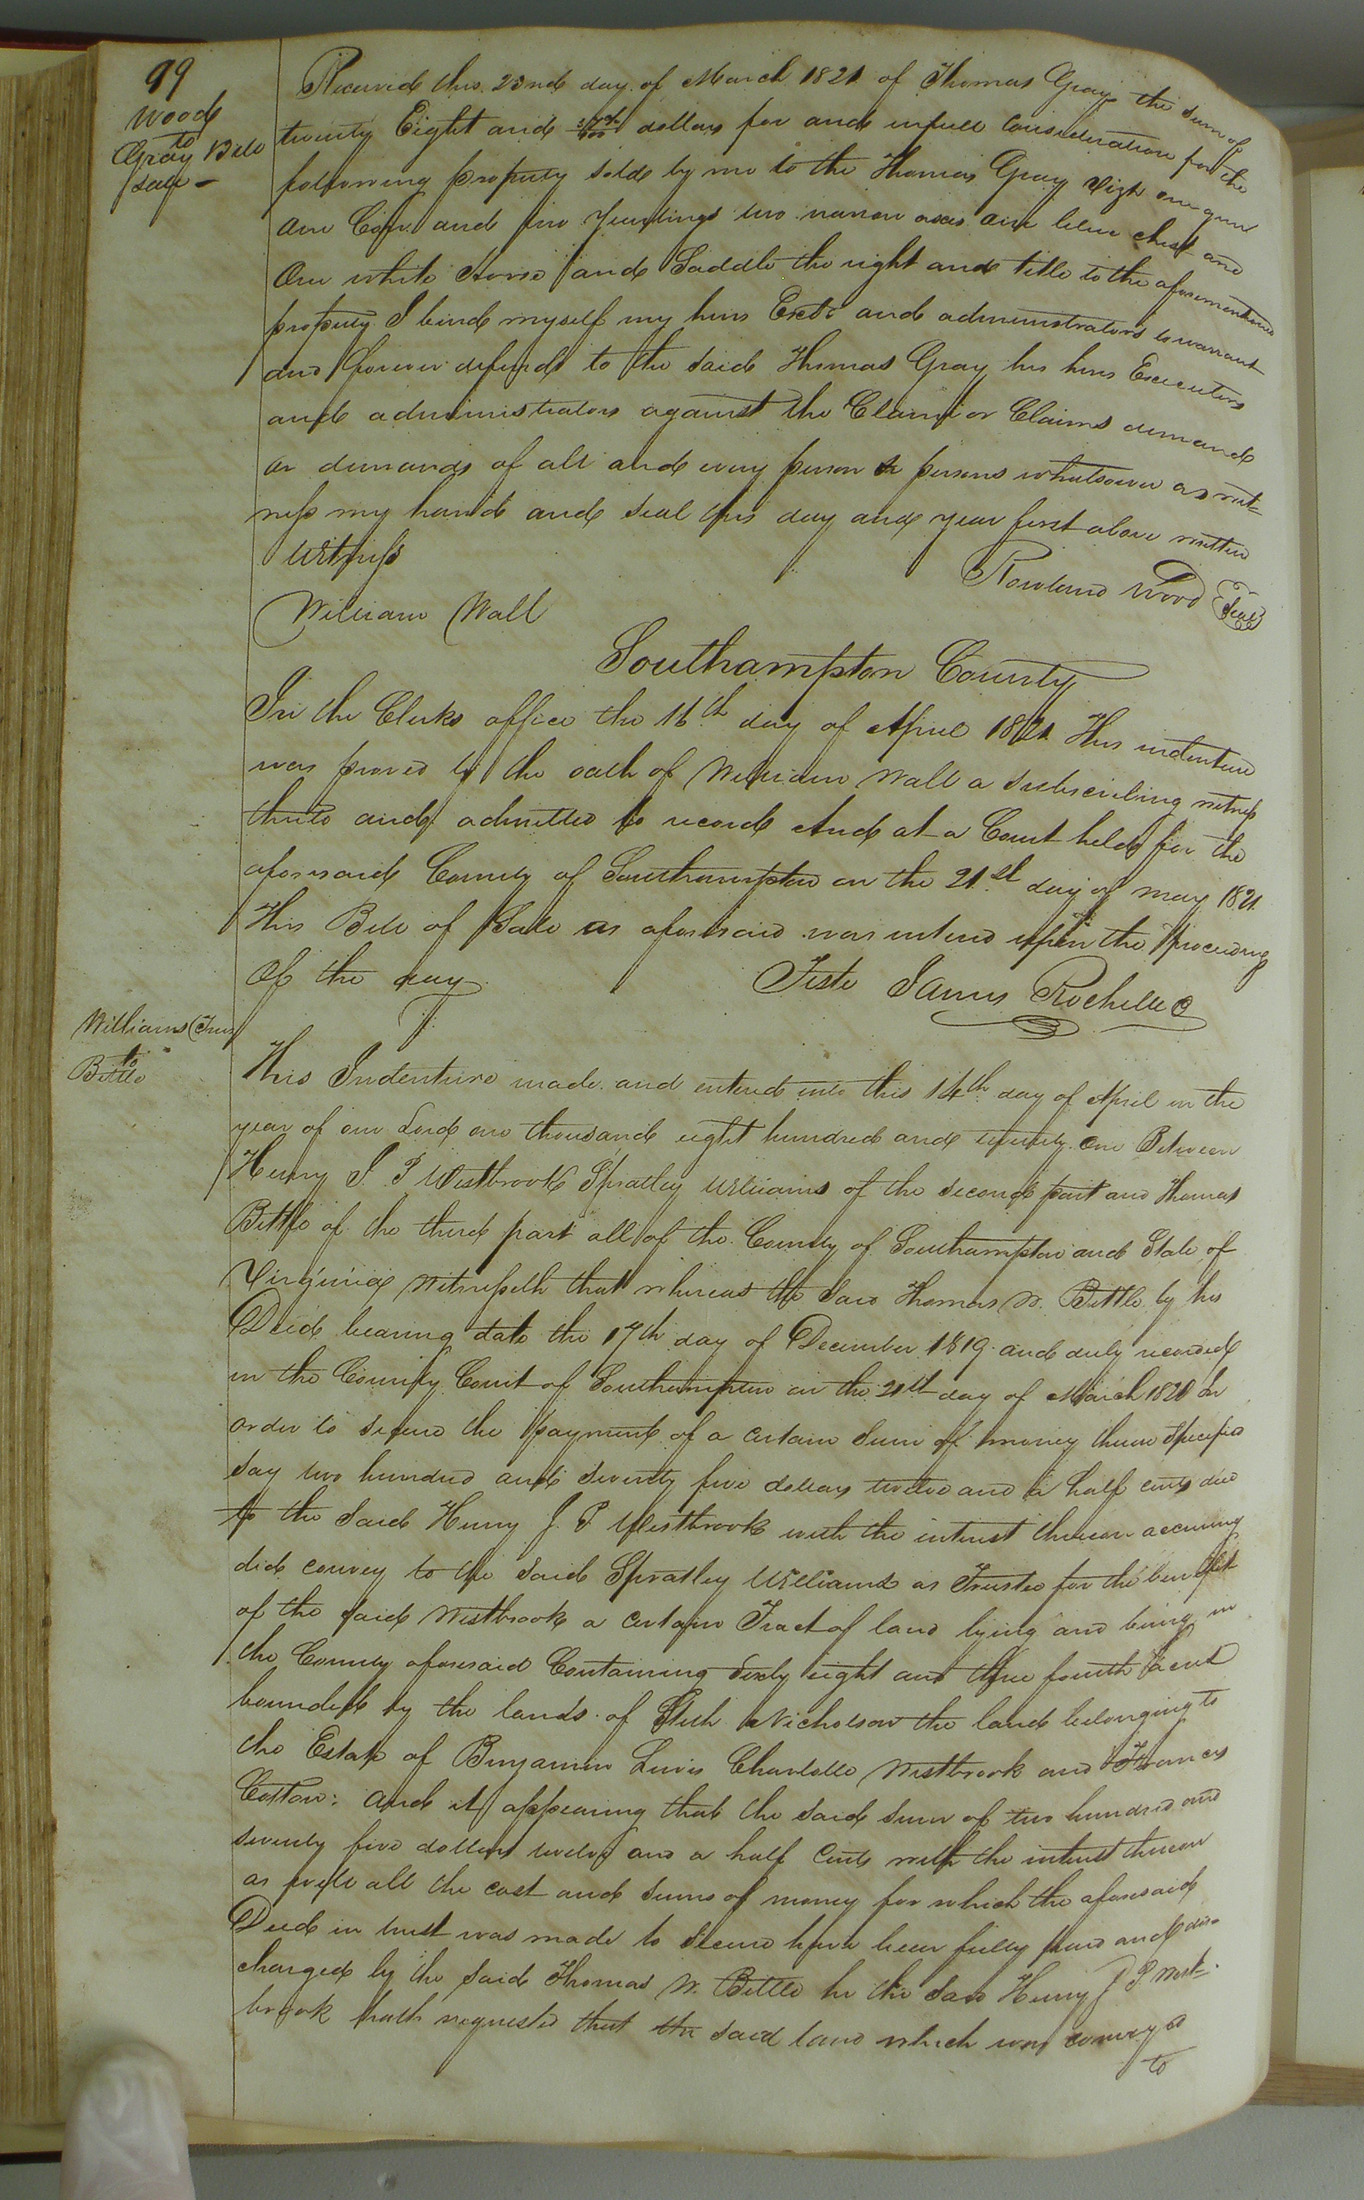 99
Wood
to
Gray Bill
Sale -
Received this 22nd day of March 1821 of Thomas Gray the sum of
twenty Eight and dollars for and in full consideration for the
following property sold by me to the Thomas Gray Viz. one gun
One Cow and two Yearlings two narrow axes one blue chest and
One white Horse and Saddle the right and title to the aforementioned
property I bind myself my heirs Exctr and administrators to warrant
and forever defend to the said Thomas Gray his heirs Executors
and administrators against the Claim or Claims demand
or demands of all and every person or persons whatsoever as wit-
ness my hand and seal this day and year first above written
Witness
Rowland Wood Seal
William Wall
Southampton County
In the Clerks office the 16th day of April 1821 This indenture
was proved by the oath of William Wall a subscribing witness
thereto and admitted to record And at a Court held for the
aforesaid County of Southampton on the 21st day of May 1821
This Bill of Sale as aforesaid was entered upon the proceedings
of the day
Teste James Rochelle C
Williams Trus
to
Bittle
This Indenture made and entered into this 14th day of April in the
year of our Lord one thousand eight hundred and twenty one Between
Henry J. P Westbrook Spratley Williams of the second part and Thomas
Bittle of the third part all of the County of Southampton and State of
Virginia Witnesseth that whereas the said Thomas W. Bittle by his
Deed bearing date the 17th day of December 1819 and duly recorded
in the County Court of Southampton on the 21st day of March 1820 In
order to secure the payment of a certain Sum of money therein specified
say two hundred and seventy five dollars twelve and a half cents due
to the said Henry J. P Westbrook with the interest thereon accruing
did convey to the said Spratley Williams as Trustee for the benefit
of the said Westbrook a certain Tract of land lying and being in
the County aforesaid Containing Sixty eight and three fourth acres
bounded by the lands of Nicholson the land belonging to
the Estate of Benjamin Lewis Charlotte Westbrook and Frances
Cotton: And it appearing that the said sum of two hundred and
seventy five dollars twelve and a half Cents with the interest thereon
as well all the cost and sums of money for which the aforesaid
Deed in trust was made to secure have been fully paid and dis-
charged by the said Thomas W. Bittle he the said Henry J P West-
brook hath requested that the said land which was convey d
to